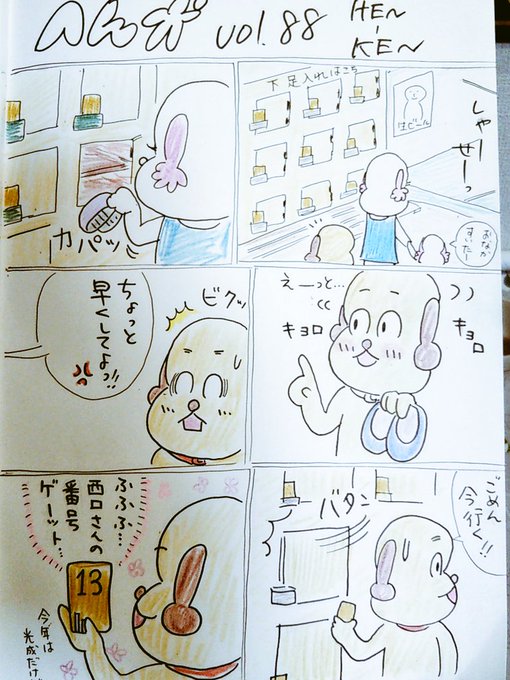 vol.88
HEN~
-
KEN~
下足入れはこち
生ビール
しゃー
せーっ
おなか
すいたー
カパッ
えーっと…
キョロ
キョロ
ビクッ
ちょっと
早くしてよっ!!
ごめん
今行く!!
バタン
ふふふ…
西口さんの
番号
ゲーット…
13
今年は
光成だけ